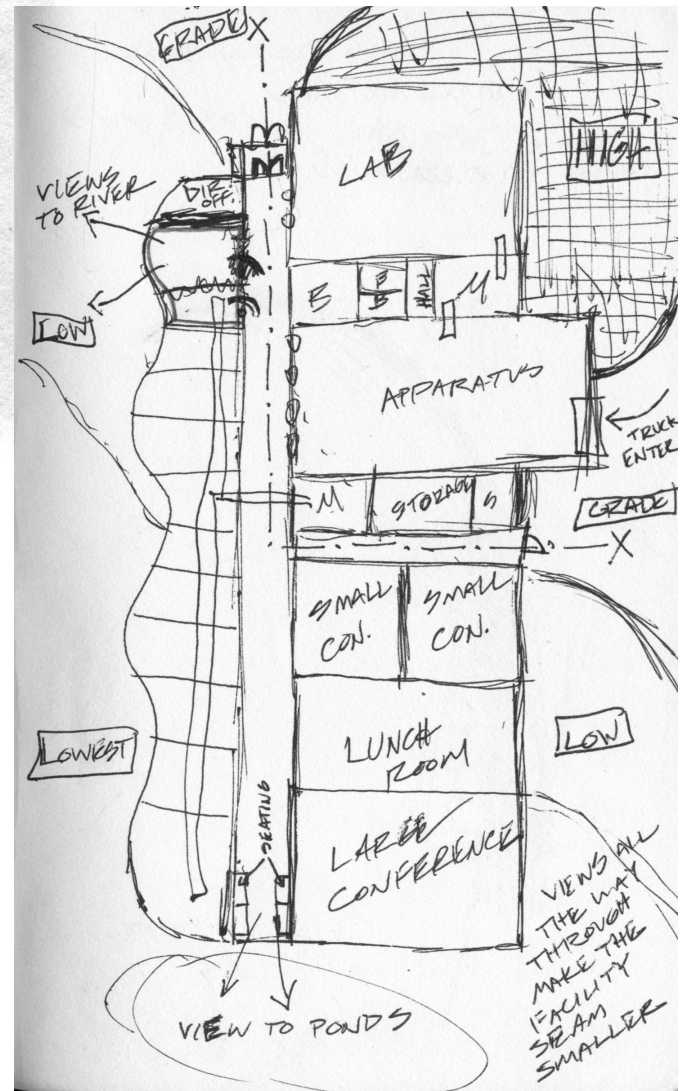 GRADE
X
LAB
HIGH
VIEWS
TO RIVER
DIR.
OFF.
LOW
E
HALL
M
APPARATUS
TRUCK
ENTER
M
STORAGE
S
GRADE
X
SMALL
CON.
SMALL
CON.
LOWEST
LUNCH
ROOM
LOW
SEATING
LARGE
CONFERENCE
VIEWS ALL
THE WAY
THROUGH
MAKE THE
FACILITY
SEAM
SMALLER
VIEW TO PONDS